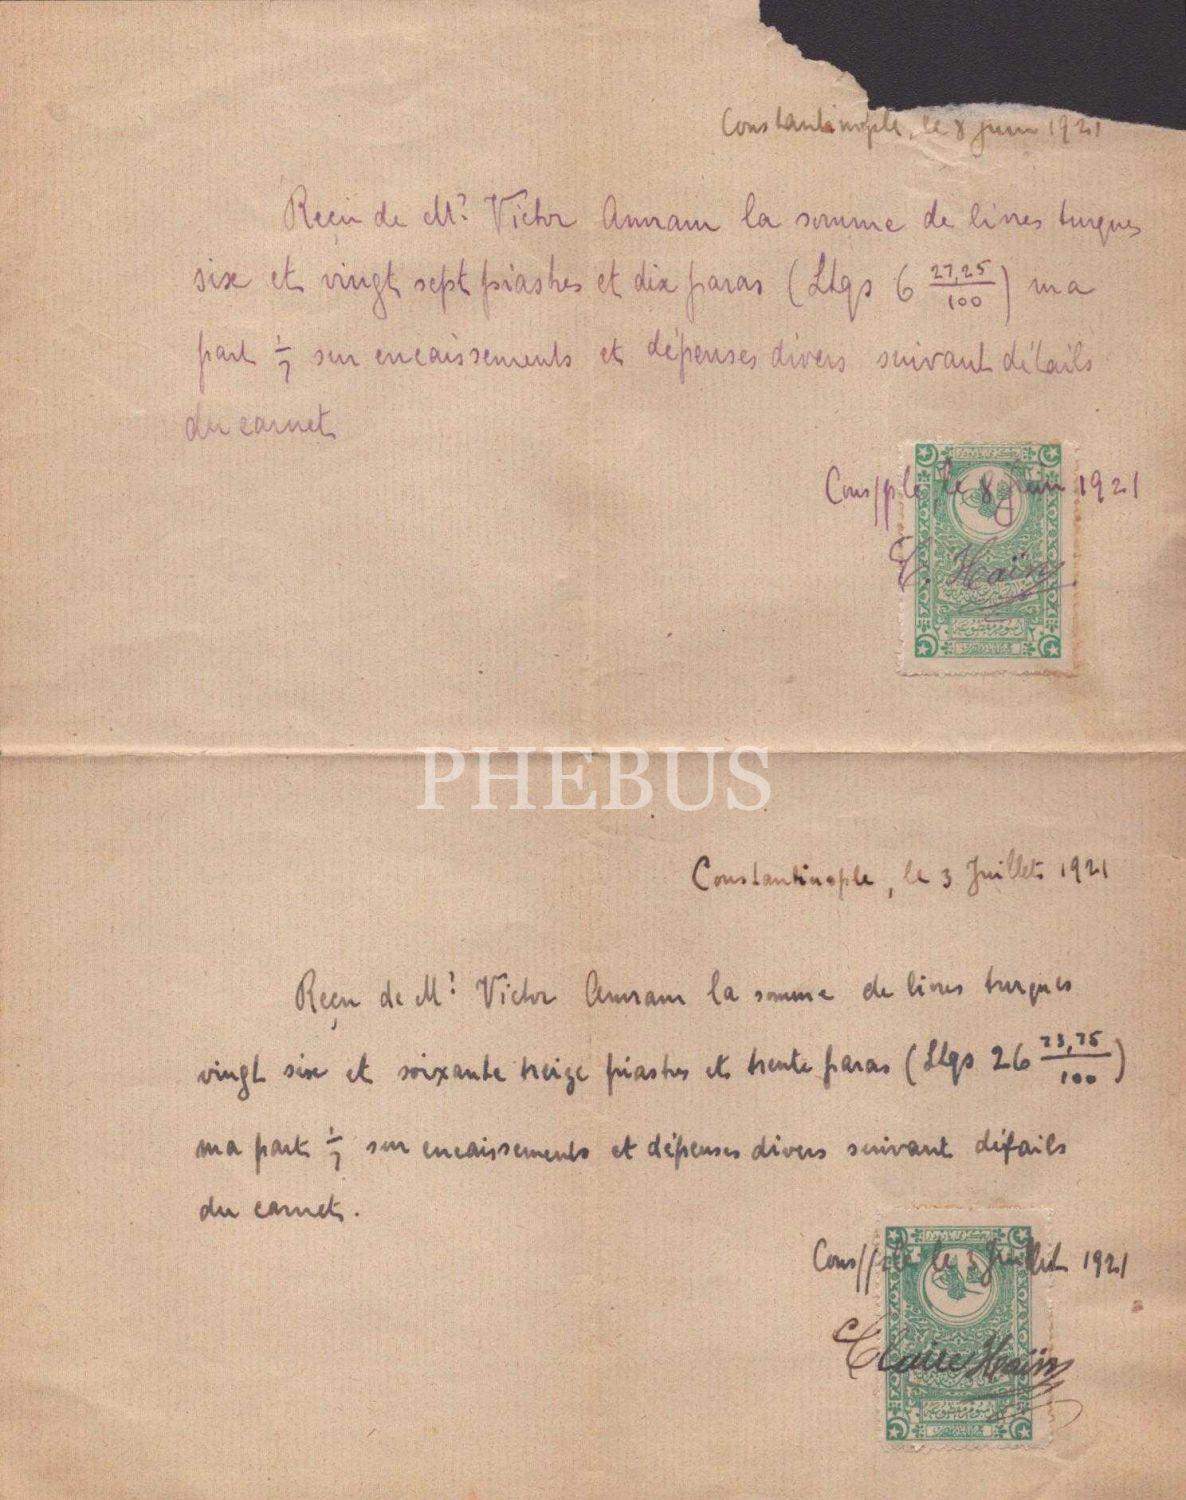 Constantinople, le 8 juin 1921
Reçu de Mr Victor Amram la somme de livres turques
six et vingt sept piastres et dix paras (Ltqs 6 27,25/100) ma
part 1/7 sur encaissements et dépenses divers suivant détails
du carnet
Cons/ple, le 8 Juin 1921
C. Haïm
PHEBUS
Constantinople, le 3 Juillet 1921
Reçu de Mr Victor Amram la somme de livres turques
vingt six et soixante treize piastres et trente paras (Ltqs 26 73,75/100)
ma part 1/7 sur encaissements et dépenses divers suivant détails
du carnet.
Cons/ple le 3 Juillet 1921
Claire Haïm